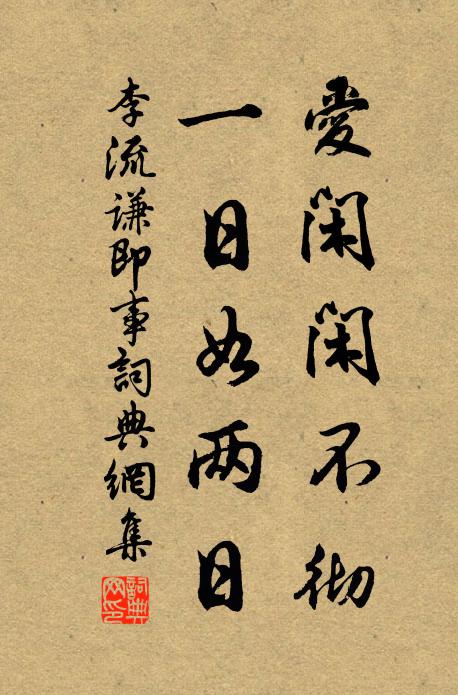 愛閑閑不彻
一日如两日
李流謙即事詞典網集
詞典网印